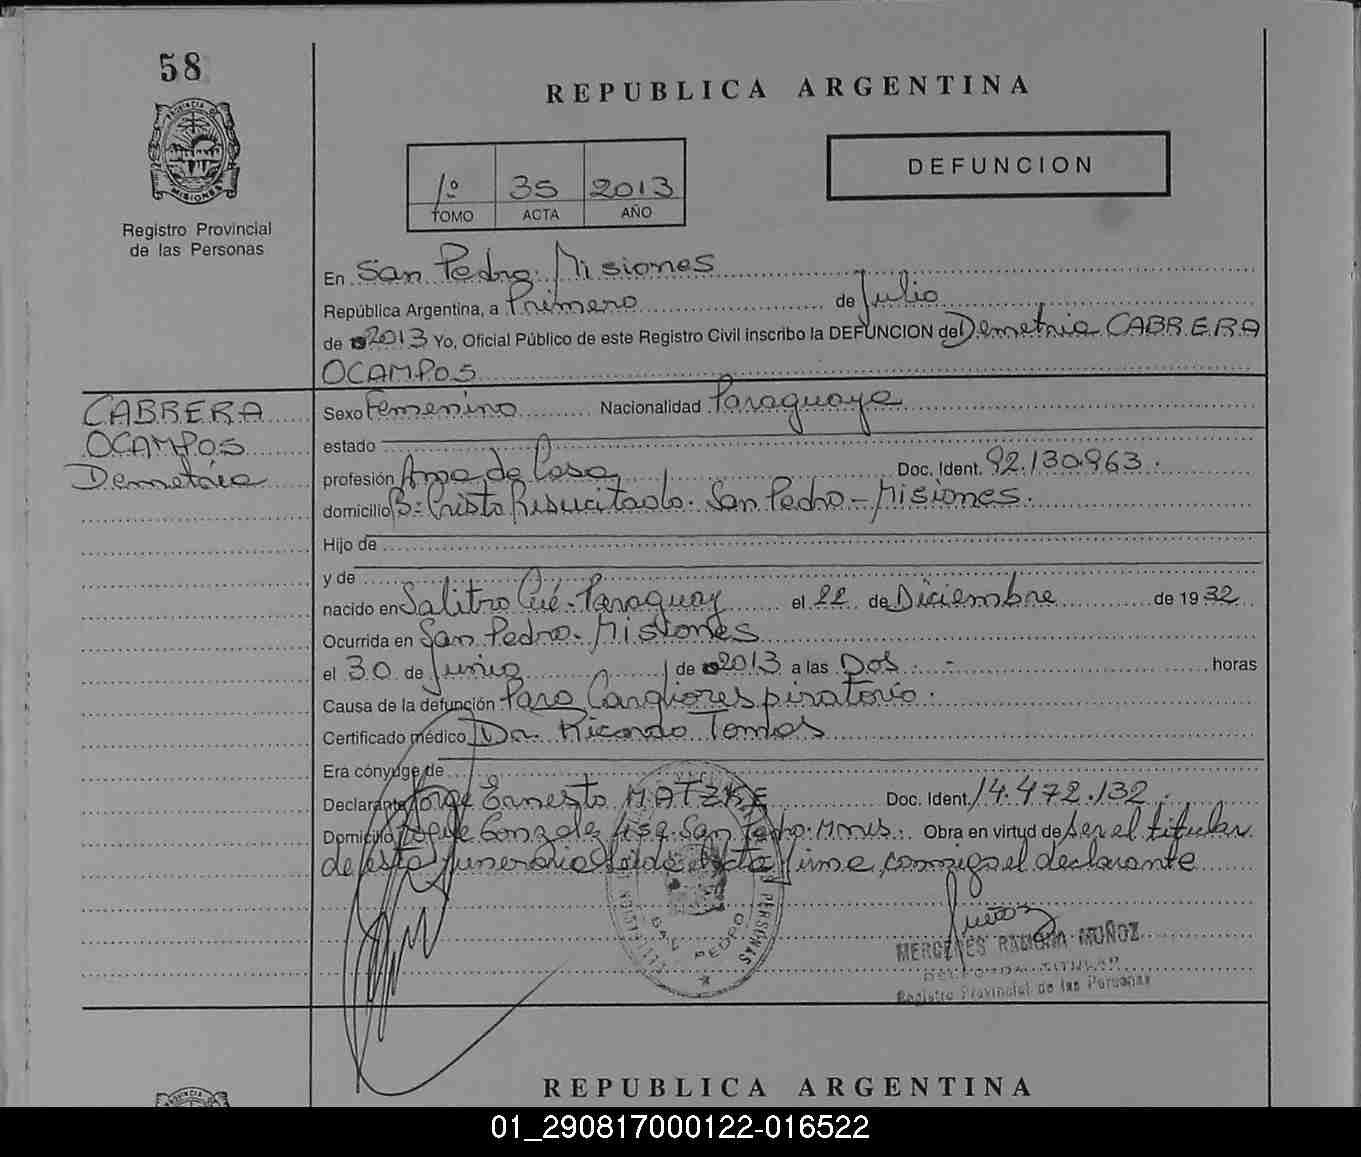 58
PROVINCIA DE
MISIONES
Registro Provincial
de las Personas
REPUBLICA ARGENTINA
DEFUNCION
1º 35 2013
TOMO ACTA AÑO
En San Pedro. Misiones
República Argentina, a Primero de Julio
de 2013 Yo, Oficial Público de este Registro Civil inscribo la DEFUNCION de Demetria CABRERA
OCAMPOS
CABRERA
OCAMPOS
Demetria
Sexo Femenino Nacionalidad Paraguaya
estado
profesión Ama de Casa Doc. Ident. 92.130.963.
domicilio Bº Cristo Resucitado. San Pedro - Misiones.
Hijo de
y de
nacido en Salitro Cué - Paraguay el 22 de Diciembre de 1932
Ocurrida en San Pedro. Misiones
el 30 de Junio de 2013 a las Dos.- horas
Causa de la defunción Paro Cardiorespiratorio.
Certificado médico Dr. Ricardo
Era cónyuge de
Declarante Jorge Ernesto MATZKE Doc. Ident. 14.472.132.
Domicilio San Pedro. Obra en virtud de ser el titular
de esta funeraria Leída Acta firma conmigo el declarante
SAN PEDRO
PERSONAS
MERCEDES RAMONA MUÑOZ
TITULAR
Registro Provincial de las Personas
REPUBLICA ARGENTINA
01_290817000122-016522